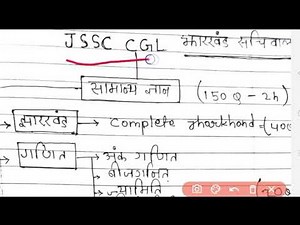 JSSC CGL झारखंड सचिवाल
सामान्य ज्ञान (150 Q - 2h)
झारखंड → Complete Jharkhand
गणित → अंक गणित
→ बीजगणित
→ ज्यामिति